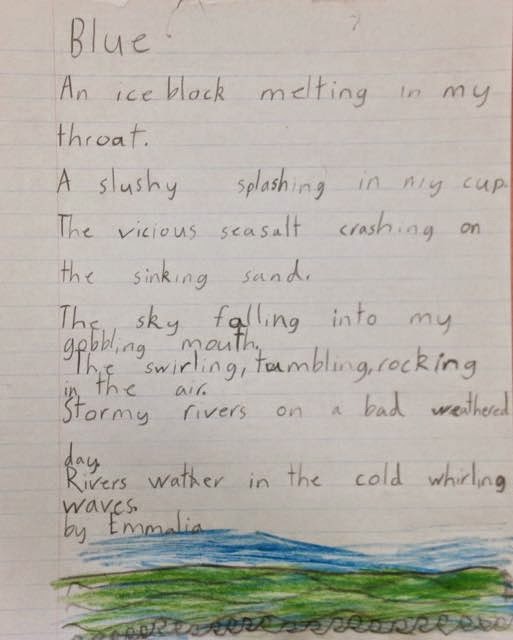 Blue
An ice block melting in my
throat.
A slushy splashing in my cup.
The vicious seasalt crashing on
the sinking sand.
The sky falling into my
gobbling mouth.
The swirling, tumbling, rocking
in the air.
Stormy rivers on a bad weathered
day.
Rivers wather in the cold whirling
waves.
by Emmalia